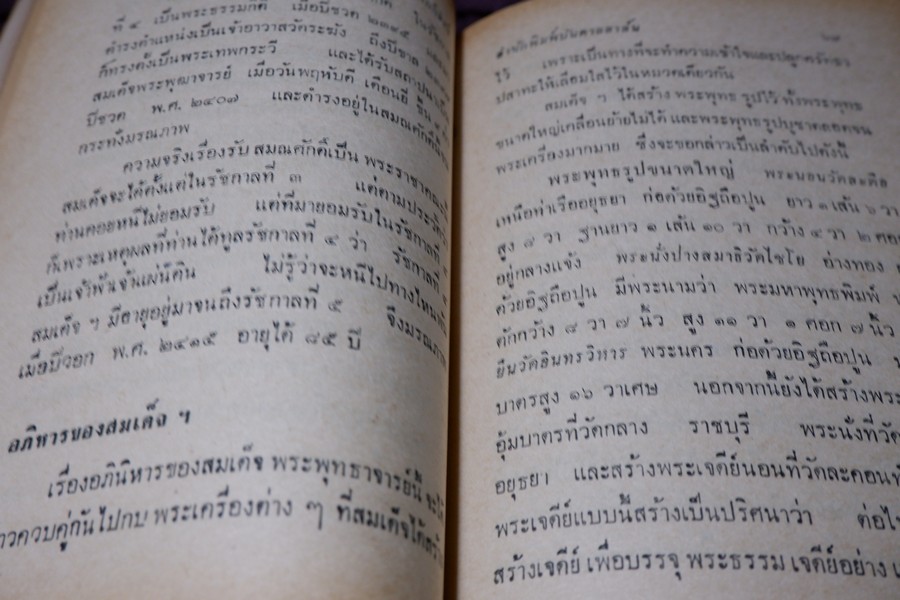 ที่ ๔ เป็นพระธรรมกิติ เมื่อปีชวด ๒๓๙๕
ดำรงตำแหน่งเป็นเจ้าอาวาสวัดระฆัง ถึงปีขาล
ก็ทรงตั้งเป็นพระเทพกระวี และได้รับสถาปนาเป็น
สมเด็จพระพุฒาจารย์ เมื่อวันพฤหับดี เดือนยี่ ขึ้น
ปีชวด พ.ศ. ๒๔๐๗ และดำรงอยู่ในสมณศักดิ์นี้จน
กระทั่งมรณภาพ
ความจริงเรื่องรับ สมณศักดิ์เป็น พระราชาคณะ
สมเด็จจะได้ตั้งแต่ในรัชกาลที่ ๓ แต่ตามประวัติว่า
ท่านคอยหนีไม่ยอมรับ แต่ที่มายอมรับในรัชกาลที่ ๔
ก็เพราะเหตุผลที่ท่านได้ทูลรัชกาลที่ ๔ ว่า รัชกาลที่
เป็นเจ้าฟ้าเจ้าแผ่นดิน ไม่รู้ว่าจะหนีไปทางไหนพ้น
สมเด็จ ฯ มีอายุอยู่มาจนถึงรัชกาลที่ ๕ จึงมรณภาพ
เมื่อปีวอก พ.ศ. ๒๔๑๕ อายุได้ ๘๕ ปี
อภิหารของสมเด็จ ฯ
เรื่องอภินิหารของสมเด็จ พระพุทธาจารย์นี้ จะได้
าวควบคู่กันไปกบ พระเครื่องต่าง ๆ ที่สมเด็จได้สร้าง
สำนักพิมพ์บันดาลสาส์น
ไว้ เพราะเป็นทางที่จะทำความเข้าใจและปลูกศรัทธา
ปสาทะให้เลื่อมใสไว้ในหมวดเดียวกัน
สมเด็จ ฯ ได้สร้าง พระพุทธ รูปไว้ ทั้งพระพุทธ
ขนาดใหญ่เคลื่อนย้ายไม่ได้ และพระพุทธรูปบูชาตลอดจน
พระเครื่องมากมาย ซึ่งจะขอกล่าวเป็นลำดับไปดังนี้
พระพุทธรูปขนาดใหญ่ พระนอนวัดสะตือ
เหนือท่าเรืออยุธยา ก่อด้วยอิฐถือปูน ยาว ๑ เส้น ๖ วา
สูง ๘ วา ฐานยาว ๑ เส้น ๑๐ วา กว้าง ๔ วา ๒ ศอก
อยู่กลางแจ้ง พระนั่งปางสมาธิวัดไชโย อ่างทอง
ด้วยอิฐถือปูน มีพระนามว่า พระมหาพุทธพิมพ์
ตักกว้าง ๘ วา ๗ นิ้ว สูง ๑๑ วา ๑ ศอก ๗ นิ้ว
ยืนวัดอินทรวิหาร พระนคร ก่อด้วยอิฐถือปูน
บาตรสูง ๑๖ วาเศษ นอกจากนี้ยังได้สร้างพระ
อุ้มบาตรที่วัดกลาง ราชบุรี พระนั่งที่วัด
อยุธยา และสร้างพระเจดีย์นอนที่วัดละคอนทำ
พระเจดีย์แบบนี้สร้างเป็นปริศนาว่า ต่อไป
สร้างเจดีย์ เพื่อบรรจุ พระธรรม เจดีย์อย่าง